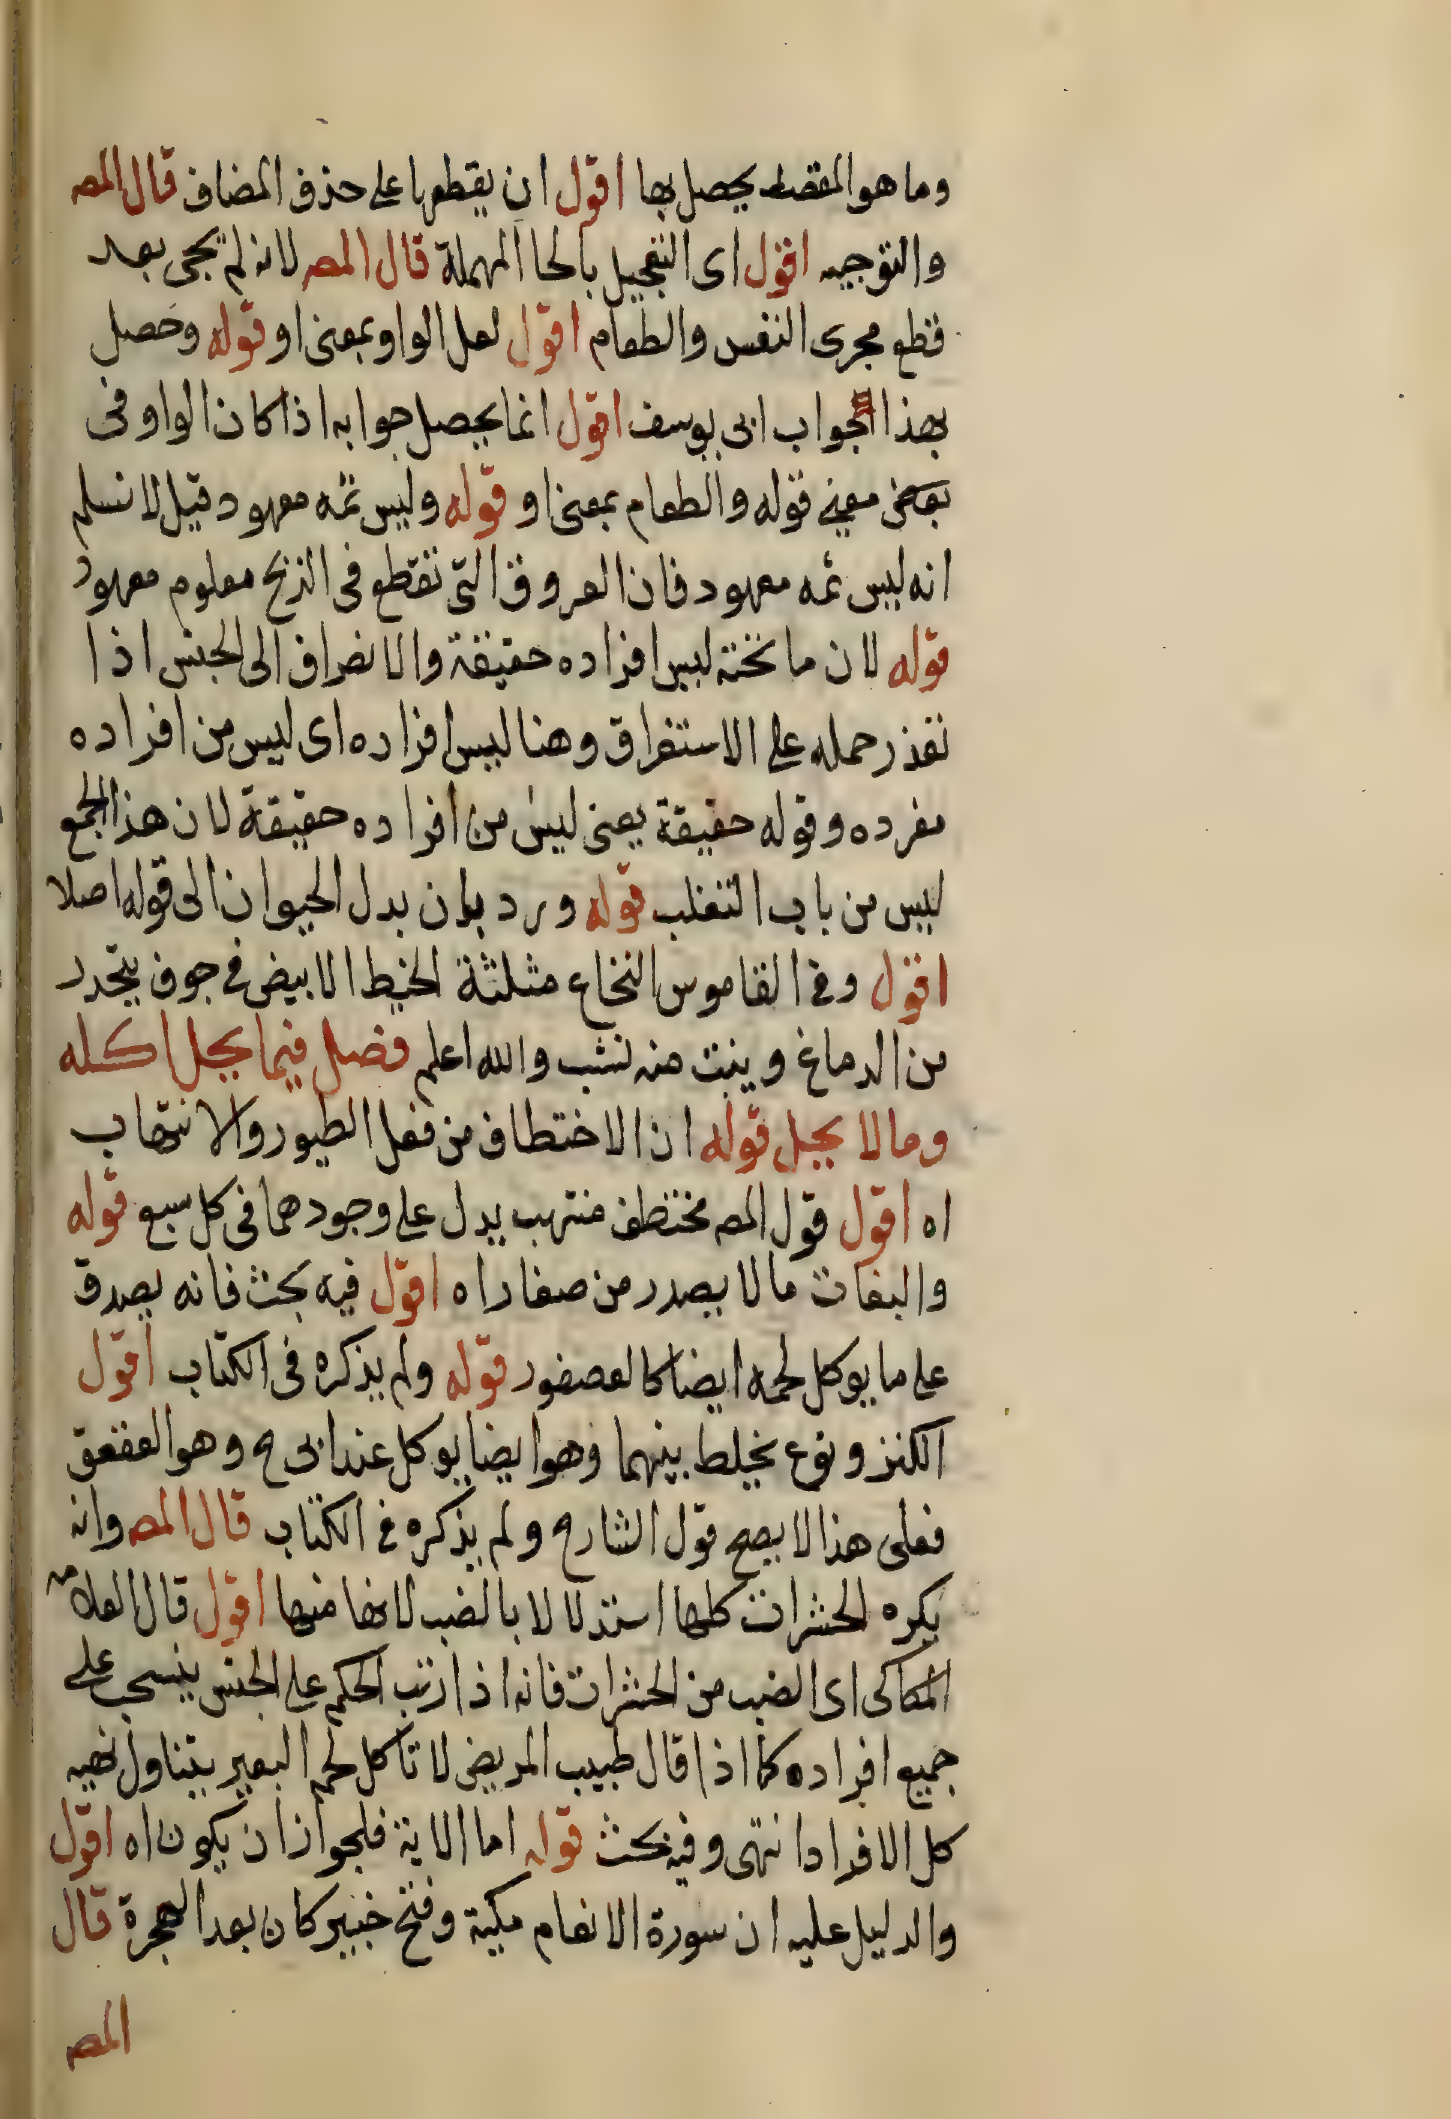 وما هو المقصود يحصل بها اقول ان يقطعها على حذف المضاف قال المص
والتوجيه اقول اى التفجيل بالحا المهملة قال المص لانه لم يجى بعد
قطع مجرى النفس والطعام اقول لعل الواو بمعنى او قوله وحصل
بهذا الجواب ابى يوسف اقول انما يحصل جوابه اذا كان الواو فى
بعض معنى قوله والطعام بمعنى او قوله وليس ثمه معهود قيل لا نسلم
انه ليس ثمه معهود فان العروق التى تقطع فى الذبح معلوم معهود
قوله لان ما تحته ليس افراده حقيقة والانصراف الى الجنس اذا
تعذر حمله على الاستغراق وهنا ليس افراده اى ليس من افراده
مفرده وقوله حقيقة يعنى ليس من افراده حقيقة لان هذا الجمع
ليس من باب التغلب قوله ورد بان بدل الحيوان الى قوله اصلا
اقول وفى القاموس النخاع مثلثة الخيط الابيض فى جوف ينحدر
من الدماغ وينبت منه لشب والله اعلم فصل فيما يحل اكله
وما لا يحل قوله ان الاختطاف من فعل الطيور والانتهاب
اه اقول قول المص مختطف منتهب يدل على وجودهما فى كل سبع قوله
والبغاث ما لا يصدر من صغار اه اقول فيه بحث فانه يصدق
على ما يوكل لحمه ايضا كالعصفور قوله ولم يذكره فى الكتاب اقول
الكنز ونوع يخلط بينهما وهو ايضا يوكل عند ابى ح وهو العقعق
فعلى هذا لا يصح قول الشارح ولم يذكره فى الكتاب قال المص وانه
يكره الحشرات كلها استدلالا بالضب لانها منها اقول قال العلامه
الكاكى اى الضب من الحشرات فانه اذا رتب الحكم على الجنس ينسحب على
جميع افراده كما اذا قال طبيب المريض لا تاكل لحم البعير يتناول نهيه
كل الافراد انتهى وفيه بحث قوله اما الاية فلجواز ان يكون اه اقول
والدليل عليه ان سورة الانعام مكية وفتح خيبر كان بعد الهجرة قال
المص